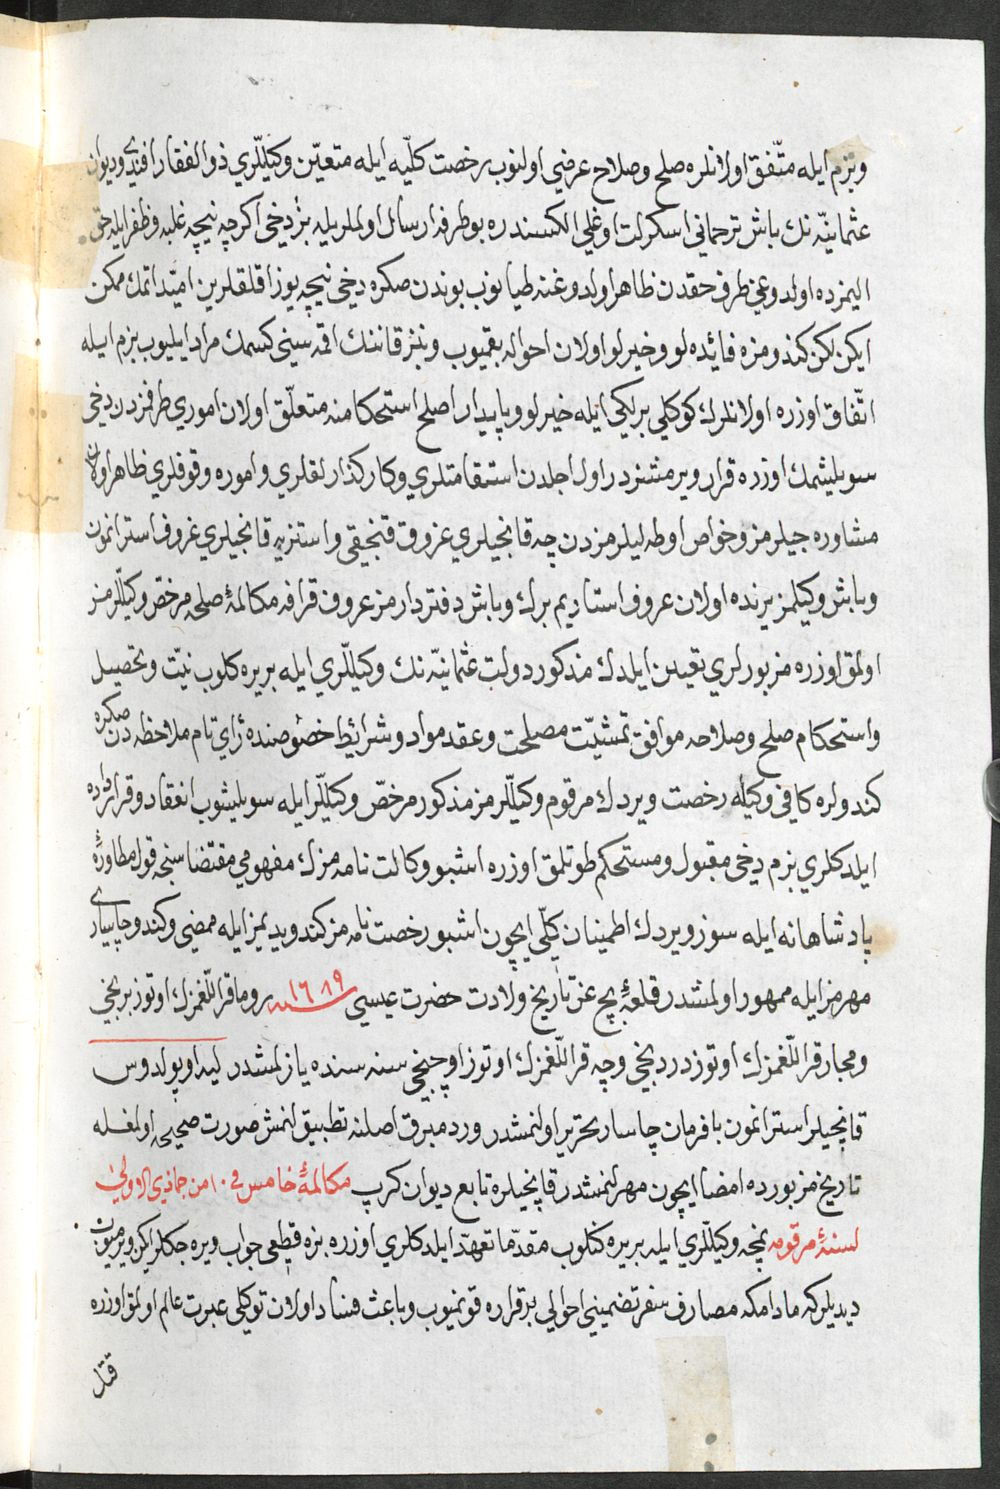 وبزم ايله متّفق اولانلره صلح وصلاح عرضي اولنوب رخصت كلّيه ايله متعيّن وكيللري ذو الفقار افندي وديوان
عثمانيّه نك باش ترجماني اسكرلت اوغلي الكسندره بو طرفه ارسال اولملريله بز دخي اكرچه نيچه غلبه وظفر ايله حق
اليمزده اولدوغي طرف حقدن ظاهر اولدوغنه طيانوب بوندن صكره دخي نيچه يوز اقلقلرين امتداد اتمك ممكن
ايكن لكن كندومزه فائده لو وخيرلو اولان احواله بقميوب وبنز قاننك اقمه سنى كسمك مراد ايليوب بزم ايله
اتّفاق اوزره اولانلرك كوكلي برلكي ايله خيرلو وپايدار اصلح استحكامنه متعلّق اولان اموري طرفمزدن دخي
سويلشمك اوزره قرار ويرمشزدر اول اجلدن استقامتلري وكاركذارلقلري واموره وقوفلري ظاهر اولان
مشاوره جيلرمز وخواص اوطه ليلرمزدن چه قانجيلري غروف قنجيقي واستنريه قانجيلري غروف استراتمون
وباش وكيلمز يرنده اولان غروف استاديم برك وباش دفتردارمز غروف قرافه مكالمۀ صلحه مرخّص وكيللرمز
اولمق اوزره مزبورلري تعيين ايلدك مذكور دولت عثمانيّه نك وكيللري ايله بر يره كلوب نيّت وتحصيل
واستحكام صلح وصلاحه موافق تمشيّت مصلحت وعقد مواد وشرائط خصوصنده رأي تام ملاحظه دن صكره
كندولره كافي وكيله رخصت ويردك مرقوم وكيللرمز مذكور مرخّص وكيللر ايله سويليشوب انعقاد وقرارداده
ايلدكلري بزم دخي مقبول ومستحكم طوتلمق اوزره اشبو وكالت نامه مزك مفهومي مقتضاسنجه قول مطاوۀ
پادشاهانه ايله سوز ويردك اطمينان كلّي ايچون اشبو رخصت نامه مز كندو يديمز ايله ممضي وكندو چاساري
مهرمز ايله ممهور اولمشدر قلعۀ بچ عن تاريخ ولادت حضرت عيسى سنه ١٦٨٩ روما قراللّغمزك اوتوز برنجي
ومجار قراللّغمزك اوتوز دردنجي وچه قراللّغمزك اوتوز اوچنجي سنه سنده يازلمشدر ليه اوپولدوس
قانجيلر استراتمون با فرمان چاسار تحرير اولنمشدر ورد مبرق اصلنه تطبيق لنمش صورت صحيحه اولمغله
تاريخ مزبورده امضا ايچون مهرلنمشدر قانجيلره تابع ديوان كرپ مكالمۀ خامس في ١٠ من جمادي الاولى
لسنۀ مرقومه نمچه وكيللري ايله بر يره كلوب مقدّما تعهّد ايلدكلري اوزره بزه قطعي جواب ويره جكلر ايكن ويرميوب
ديديلر كه مادامكه مصارف سفر تضميني احوالي بر قراره قونميوب وباعث فساد اولان توكلي عبرت عالم اولمق اوزره
قتل